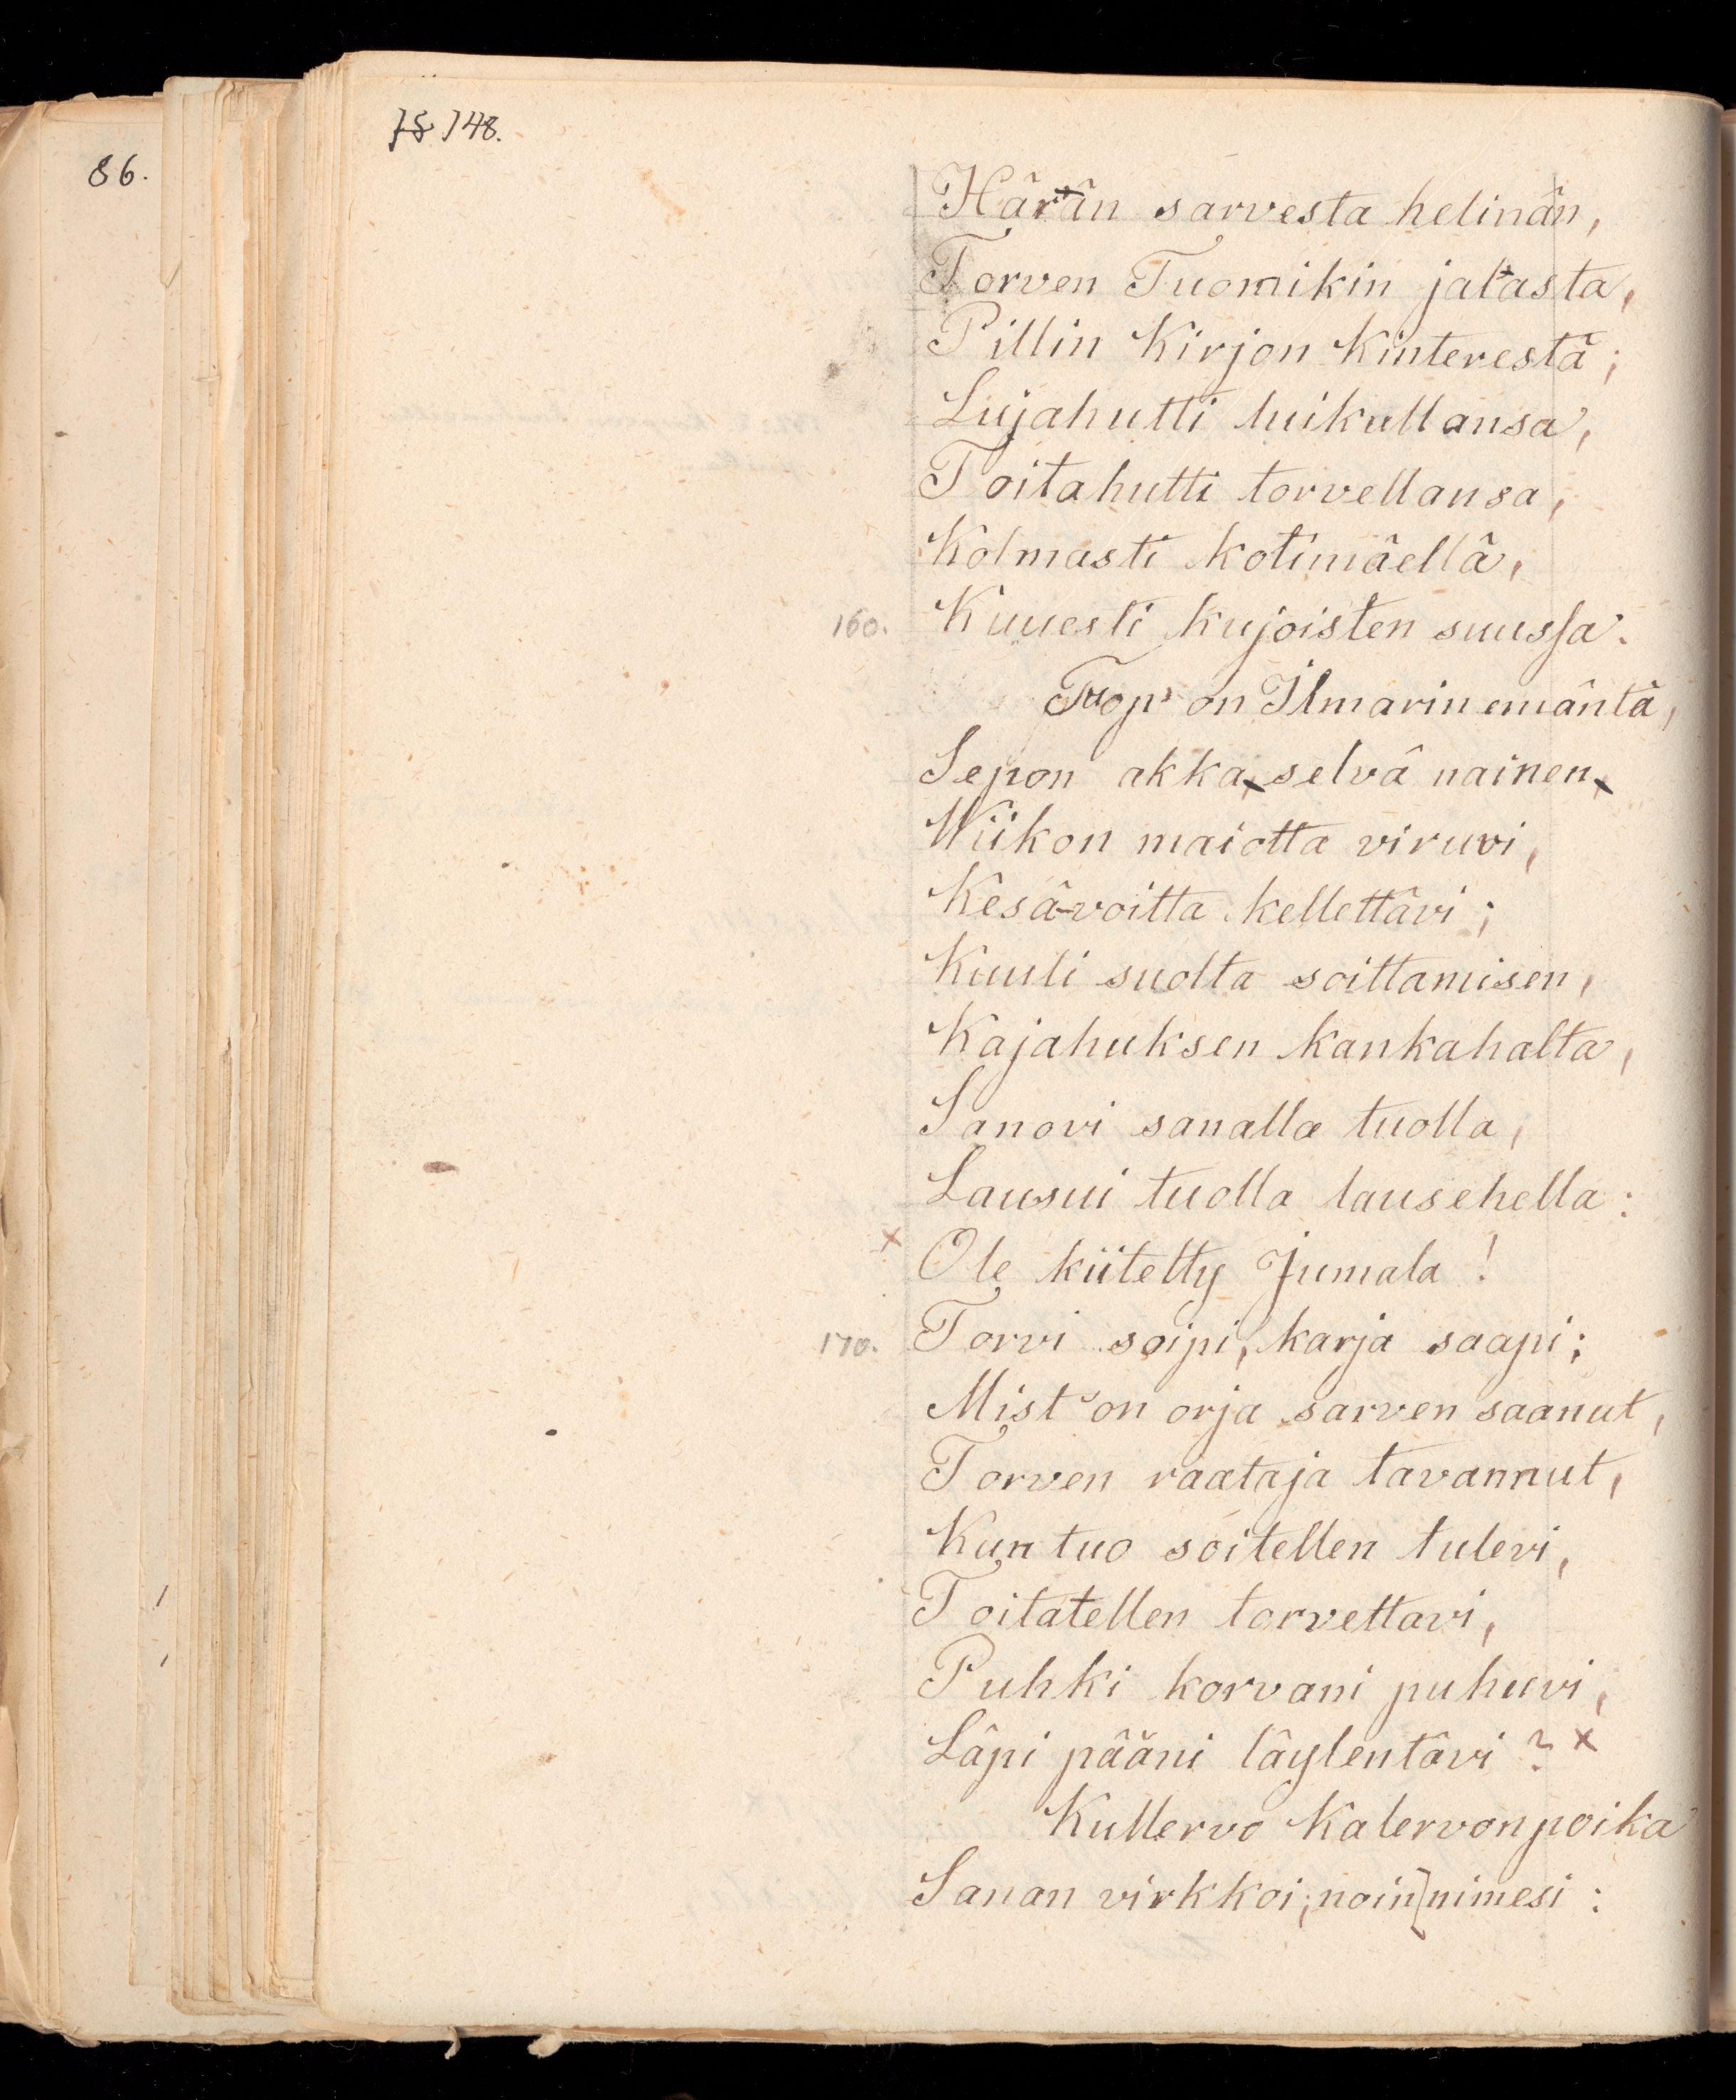 86.
148.
Härän sarvesta helinän,
Torven Tuomikin jalasta,
Pillin Kirjon kinterestä;
Lujahutti luikullansa,
Toitahutti torvellansa,
Kolmasti kotimäellä,
160. Kuuesti kujoisten suussa.
Tuop' on Ilmarin emäntä,
Sepon akka, selvä nainen,
Wiikon maiotta viruvi,
Kesävoitta kellettävi;
Kuuli suolta soittamisen,
Kajahuksen kankahalta,
Sanovi sanalla tuolla,
Lausui tuolla lausehella:
x Ole kiitetty Jumala!
170. Torvi soipi, karja saapi;
Mist' on orja sarven saanut,
Torven raataja tavannut,
Kun tuo soitellen tulevi,
Toitatellen torvettavi,
Puhki korvani puhuvi,
Läpi pääni läylentävi? x
Kullervo Kalervon poika
Sanan virkkoi, noin] nimesi: